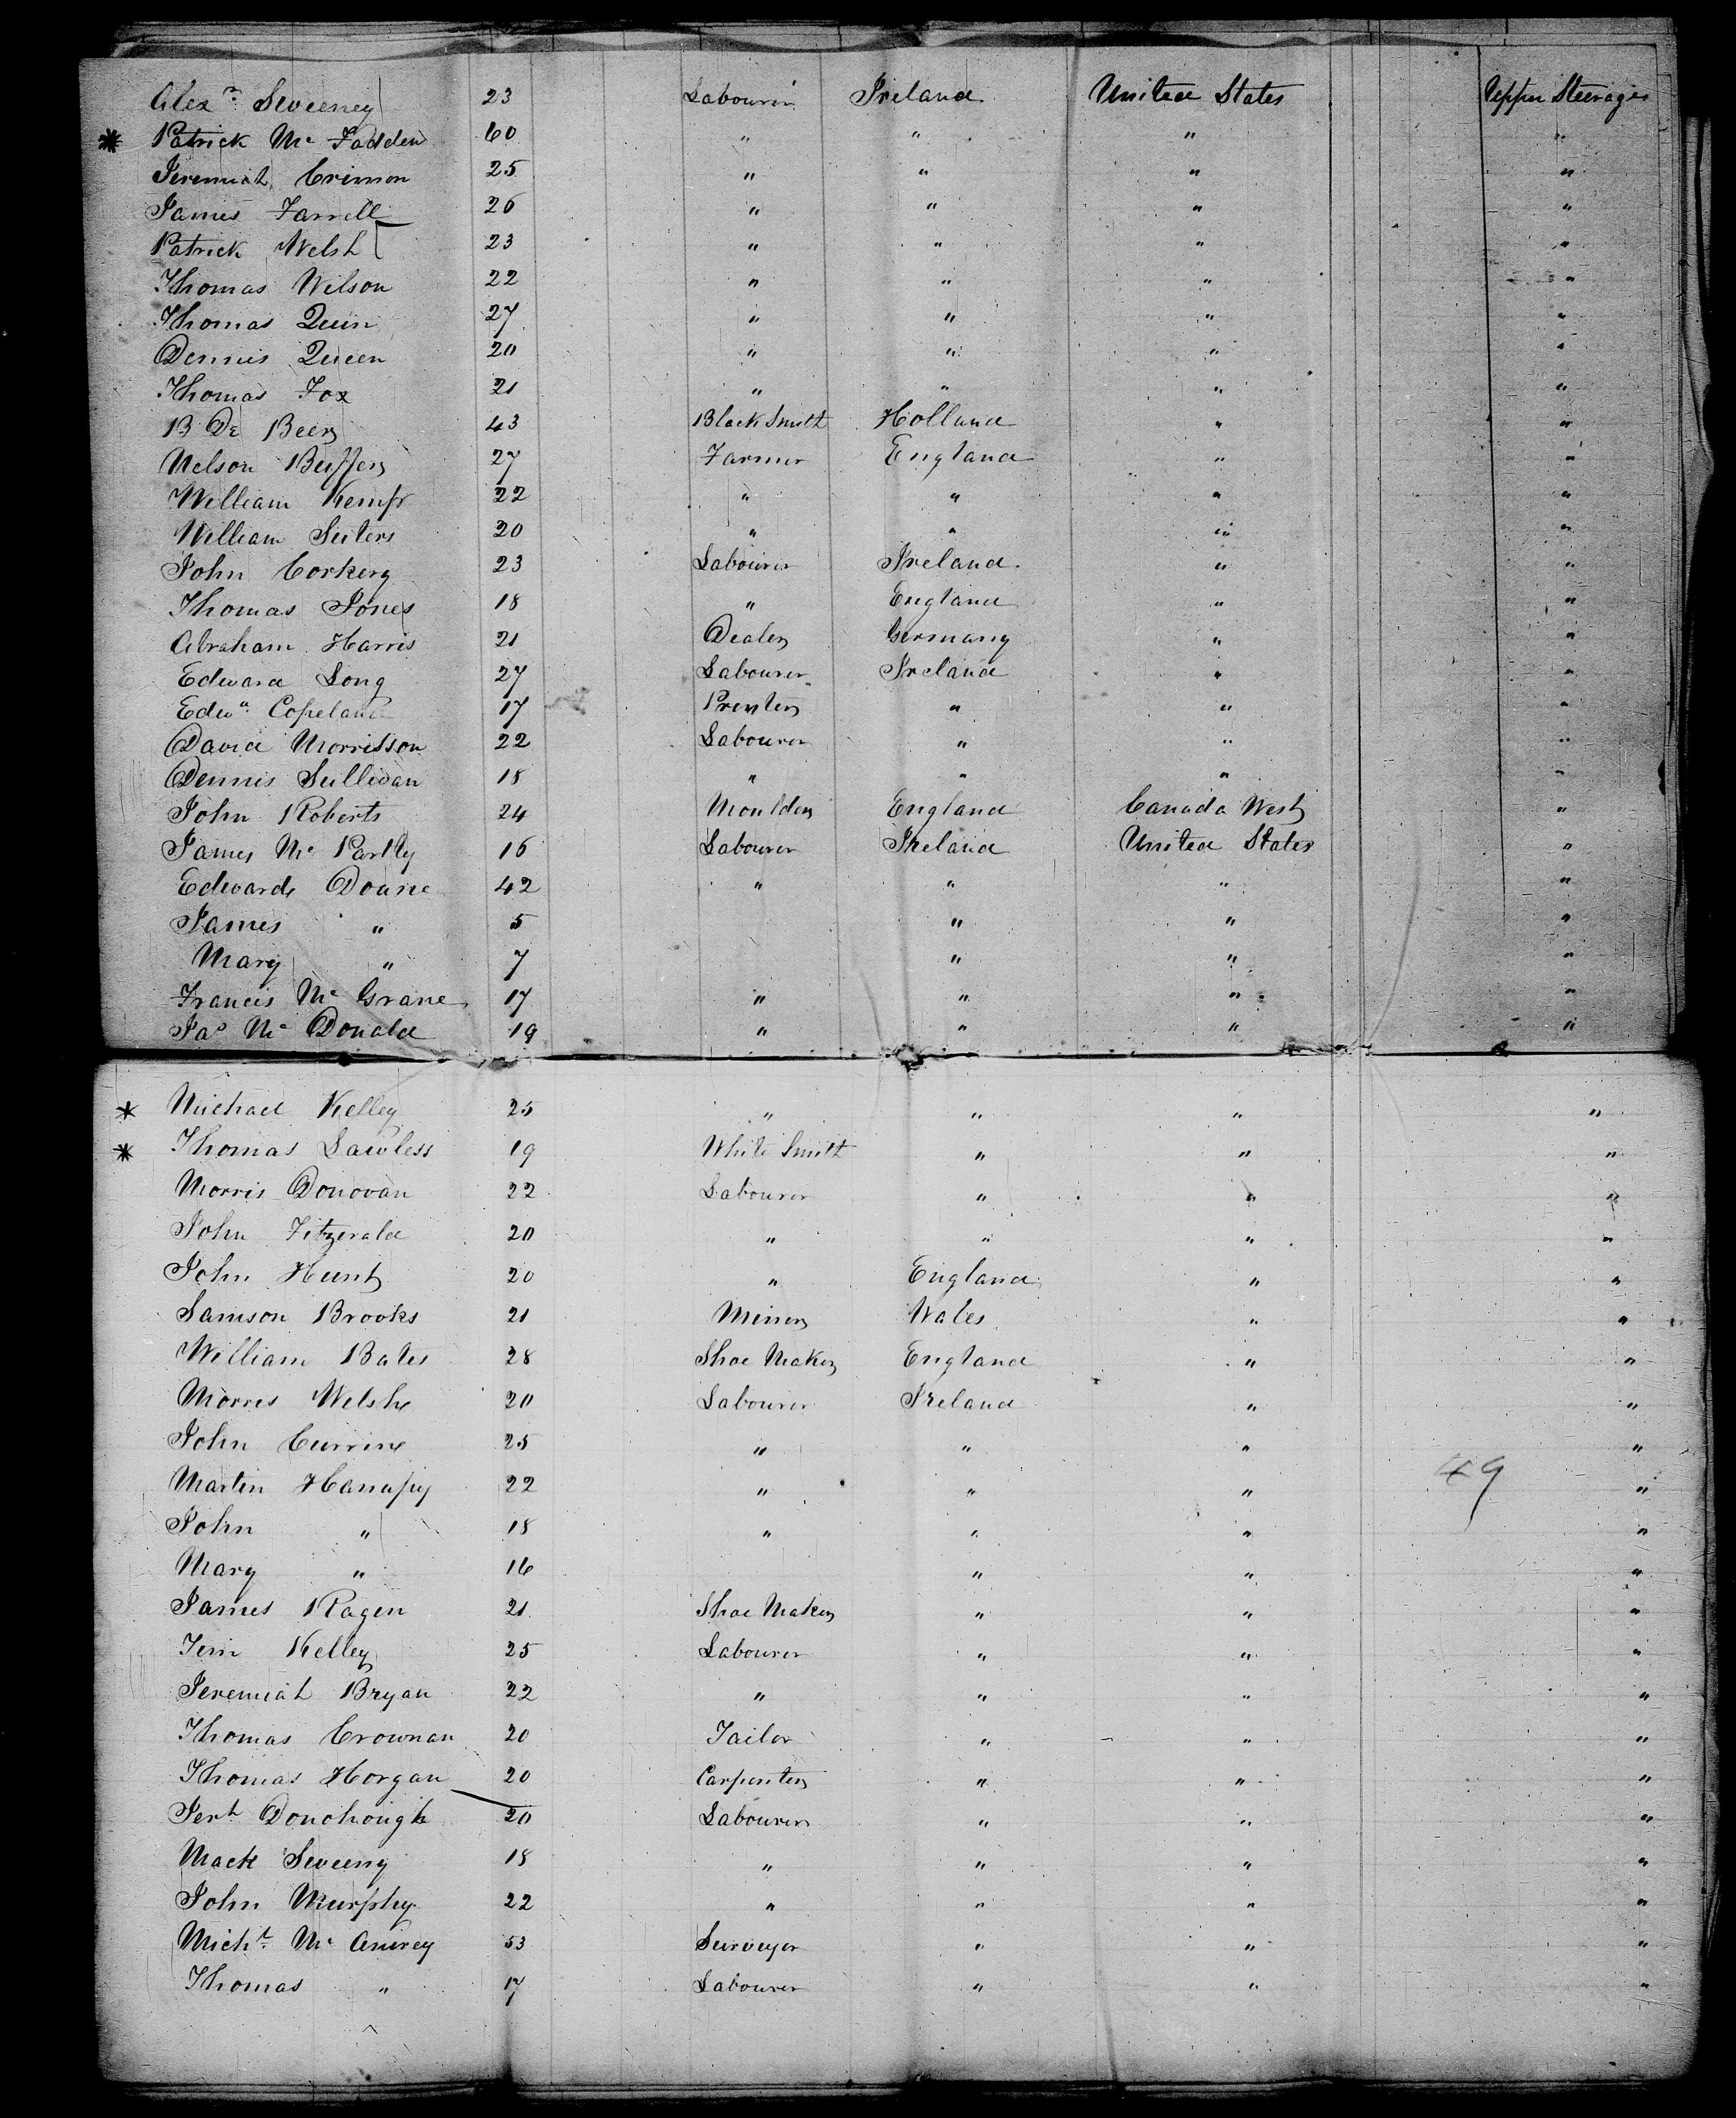 Alexr. Sweeney 23 Labourer Ireland United States Upper Steerage
* Patrick Mc Fadden 60 " " " "
Jeremiah Crimon 25 " " " "
James Farrell 26 " " " "
Patrick Welsh 23 " " " "
Thomas Wilson 22 " " " "
Thomas Quin 27 " " " "
Dennis Queen 20 " " " "
Thomas Fox 21 " " " "
B De Beer 43 Black Smith Holland " "
Nelson Buffer 27 Farmer England " "
William Kemp 22 " " " "
William Suters 20 " " " "
John Corkery 23 Labourer Ireland " "
Thomas Jones 18 " England " "
Abraham Harris 21 Dealer Germany " "
Edward Long 27 Labourer Ireland " "
Edwd. Copeland 17 Printer " " "
David Morrisson 22 Labourer " " "
Dennis Sullivan 18 " " " "
John Roberts 24 Moulder England Canada West "
James Mc Partly 16 Labourer Ireland United States "
Edward Doune 42 " " " "
James " 5 " " "
Mary " 7 " " "
Francis Mc Grane 17 " " " "
Jas Mc Donald 19 " " " "
* Michael Kelley 25 " " " "
* Thomas Lawless 19 White Smith " " "
Morris Donovan 22 Labourer " " "
John Fitzerald 20 " " " "
John Hunt 20 " England " "
Samson Brooks 21 Miner Wales " "
William Bates 28 Shoe Maker England " "
Morris Welsh 20 Labourer Ireland " "
John Currine 25 " " " "
Martin Hanapy 22 " " " 49 "
John " 18 " " " "
Mary " 16 " " "
James Ragen 21 Shoe Maker " " "
Tim Kelley 25 Labourer " " "
Jeremiah Bryan 22 " " " "
Thomas Crownan 20 Tailor " " "
Thomas Horgan 20 Carpenter " " "
Jerh. Donohough 20 Labourer " " "
Mack Sweeny 18 " " " "
John Murphy 22 " " " "
Michl. Mc 53 Surveyor " " "
Thomas " 17 Labourer " " "